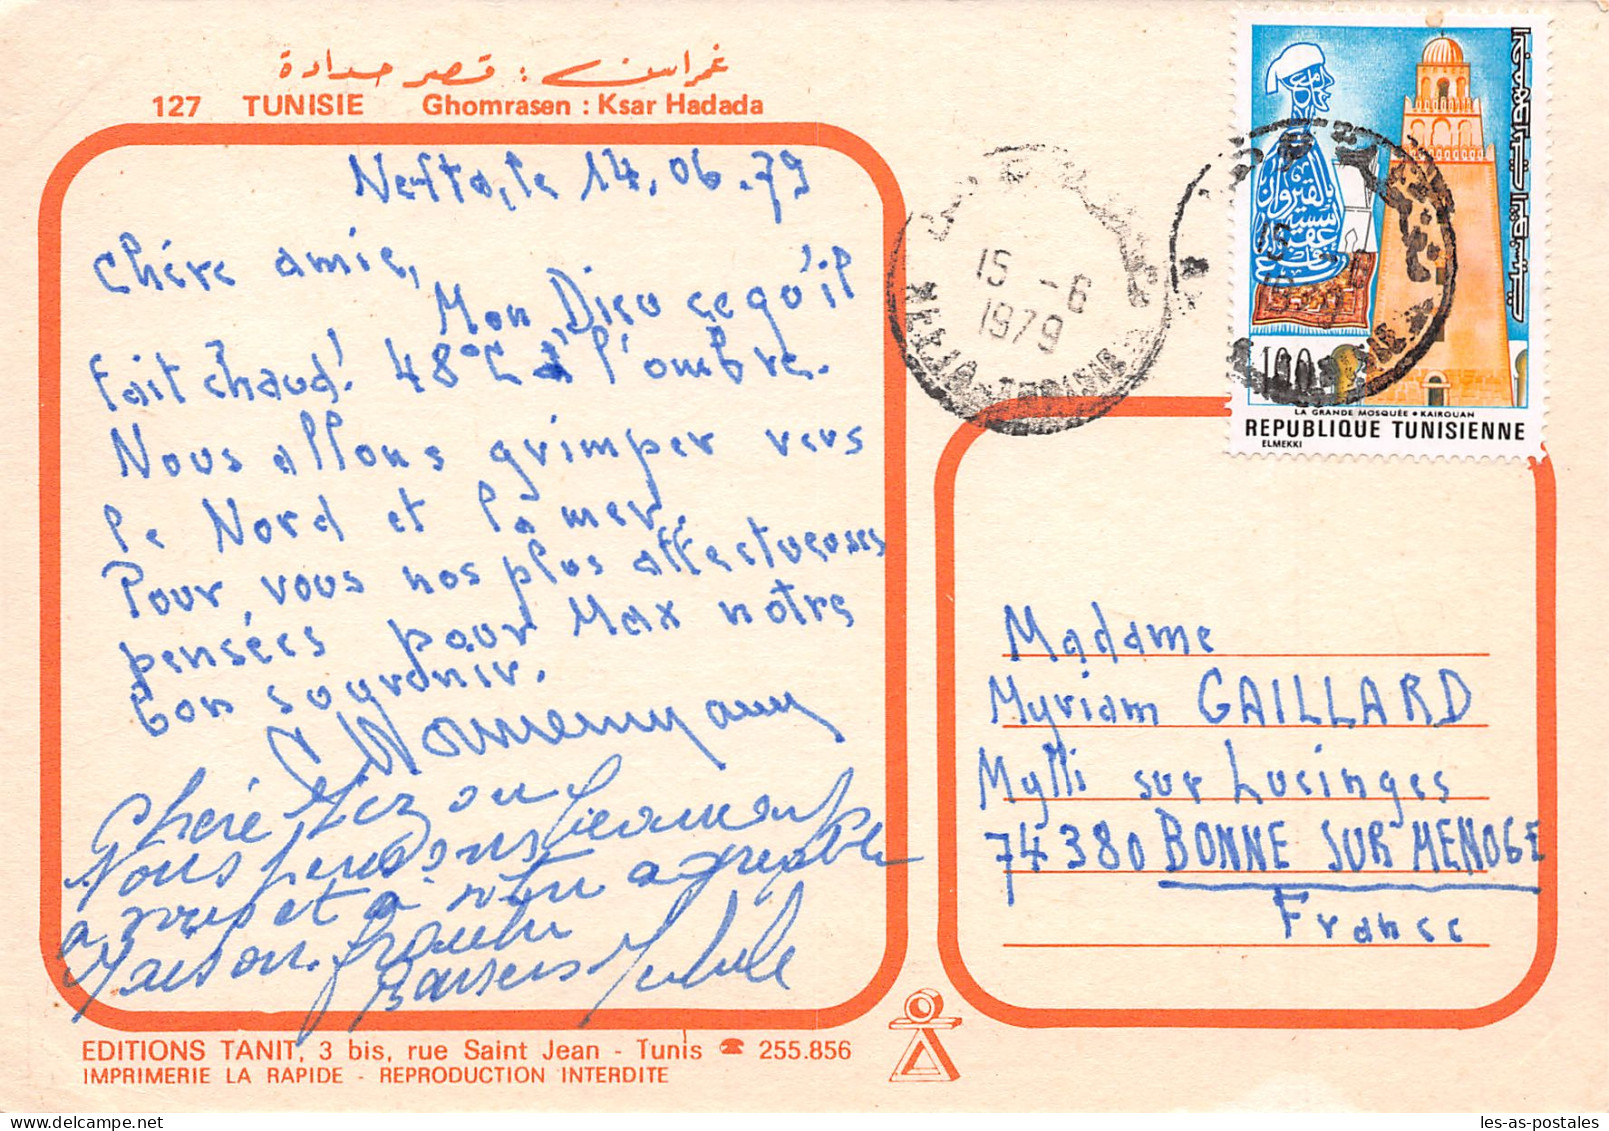 غمراسن : قصر حدادة
127 TUNISIE Ghomrasen : Ksar Hadada
Nefta, le 14.06.79
Chère amie,
Mon Dieu ce qu'il
fait chaud! 48°C à l'ombre.
Nous allons grimper vers
le Nord et la mer.
Pour vous nos plus affectueuses
pensées pour Max notre
bon souvenir.
Chère
Nous pensons beaucoup
à vous et à votre agréable
Maison.
Baisers
EDITIONS TANIT, 3 bis, rue Saint Jean - Tunis ☎ 255.856
IMPRIMERIE LA RAPIDE - REPRODUCTION INTERDITE
15 -6
1979
NEFTA - TUNISIE
الجمهورية التونسية
بالقيروان
100
LA GRANDE MOSQUÉE • KAIROUAN
REPUBLIQUE TUNISIENNE
ELMEKKI
Madame
Myriam GAILLARD
Mylli sur Lucinges
74380 BONNE SUR MENOGE
France
les-as-postales